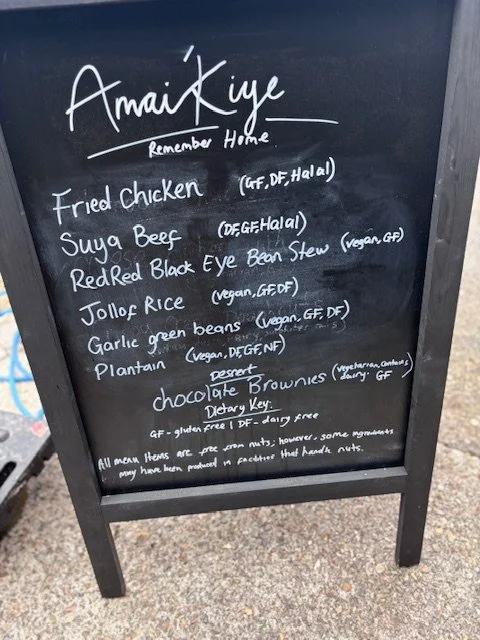 Amai'Kiye
Remember Home
Fried Chicken (GF, DF, Halal)
Suya Beef (DF, GF, Halal)
RedRed Black Eye Bean Stew (vegan, GF)
Jollof Rice (vegan, GF, DF)
Garlic green beans (vegan, GF, DF)
Plantain (vegan, DF, GF, NF)
Dessert
chocolate Brownies (vegetarian, contains
dairy. GF
Dietary Key:
GF - gluten free | DF - dairy free
All menu items are free from nuts; however, some ingredients
may have been produced in facilities that handle nuts.